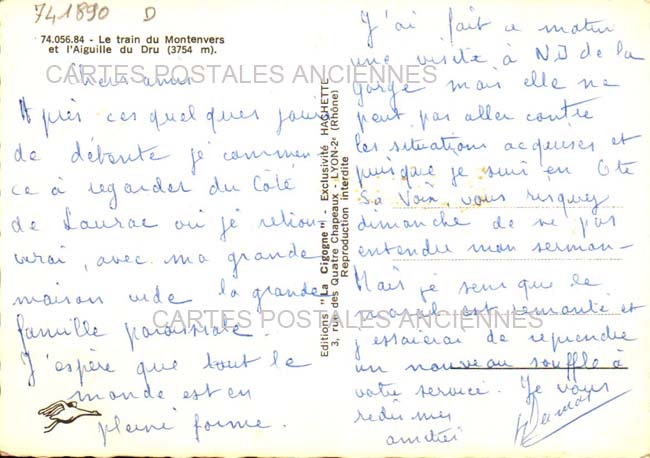 741890 D
74.056.84 - Le train du Montenvers
et l'Aiguille du Dru (3754 m).
CARTES POSTALES ANCIENNES
Chers amis
Après ces quelques jours
de détente je commen
ce à regarder du Côté
de Laurac où je retrou
verai, avec ma grande
maison vide la grande
famille paroissiale.
J'espère que tout le
monde est en
pleine forme.
Editions "La Cigogne" - Exclusivité HACHETTE
3, rue des Quatre Chapeaux - LYON-2e (Rhône)
Reproduction interdite
J'ai fait ce matin
une visite à ND de la
gorge mais elle ne
peut pas aller contre
les situations acquises et
puisque je suis en
Sa Voix, vous risquez
dimanche de ne pas
entendre mon sermon -
Mais je sens que le
moral est remonté et
CARTES POSTALES ANCIENNES
j'essaierai de reprendre
un nouveau souffle à
votre service. Je vous
redis mes
amitiés